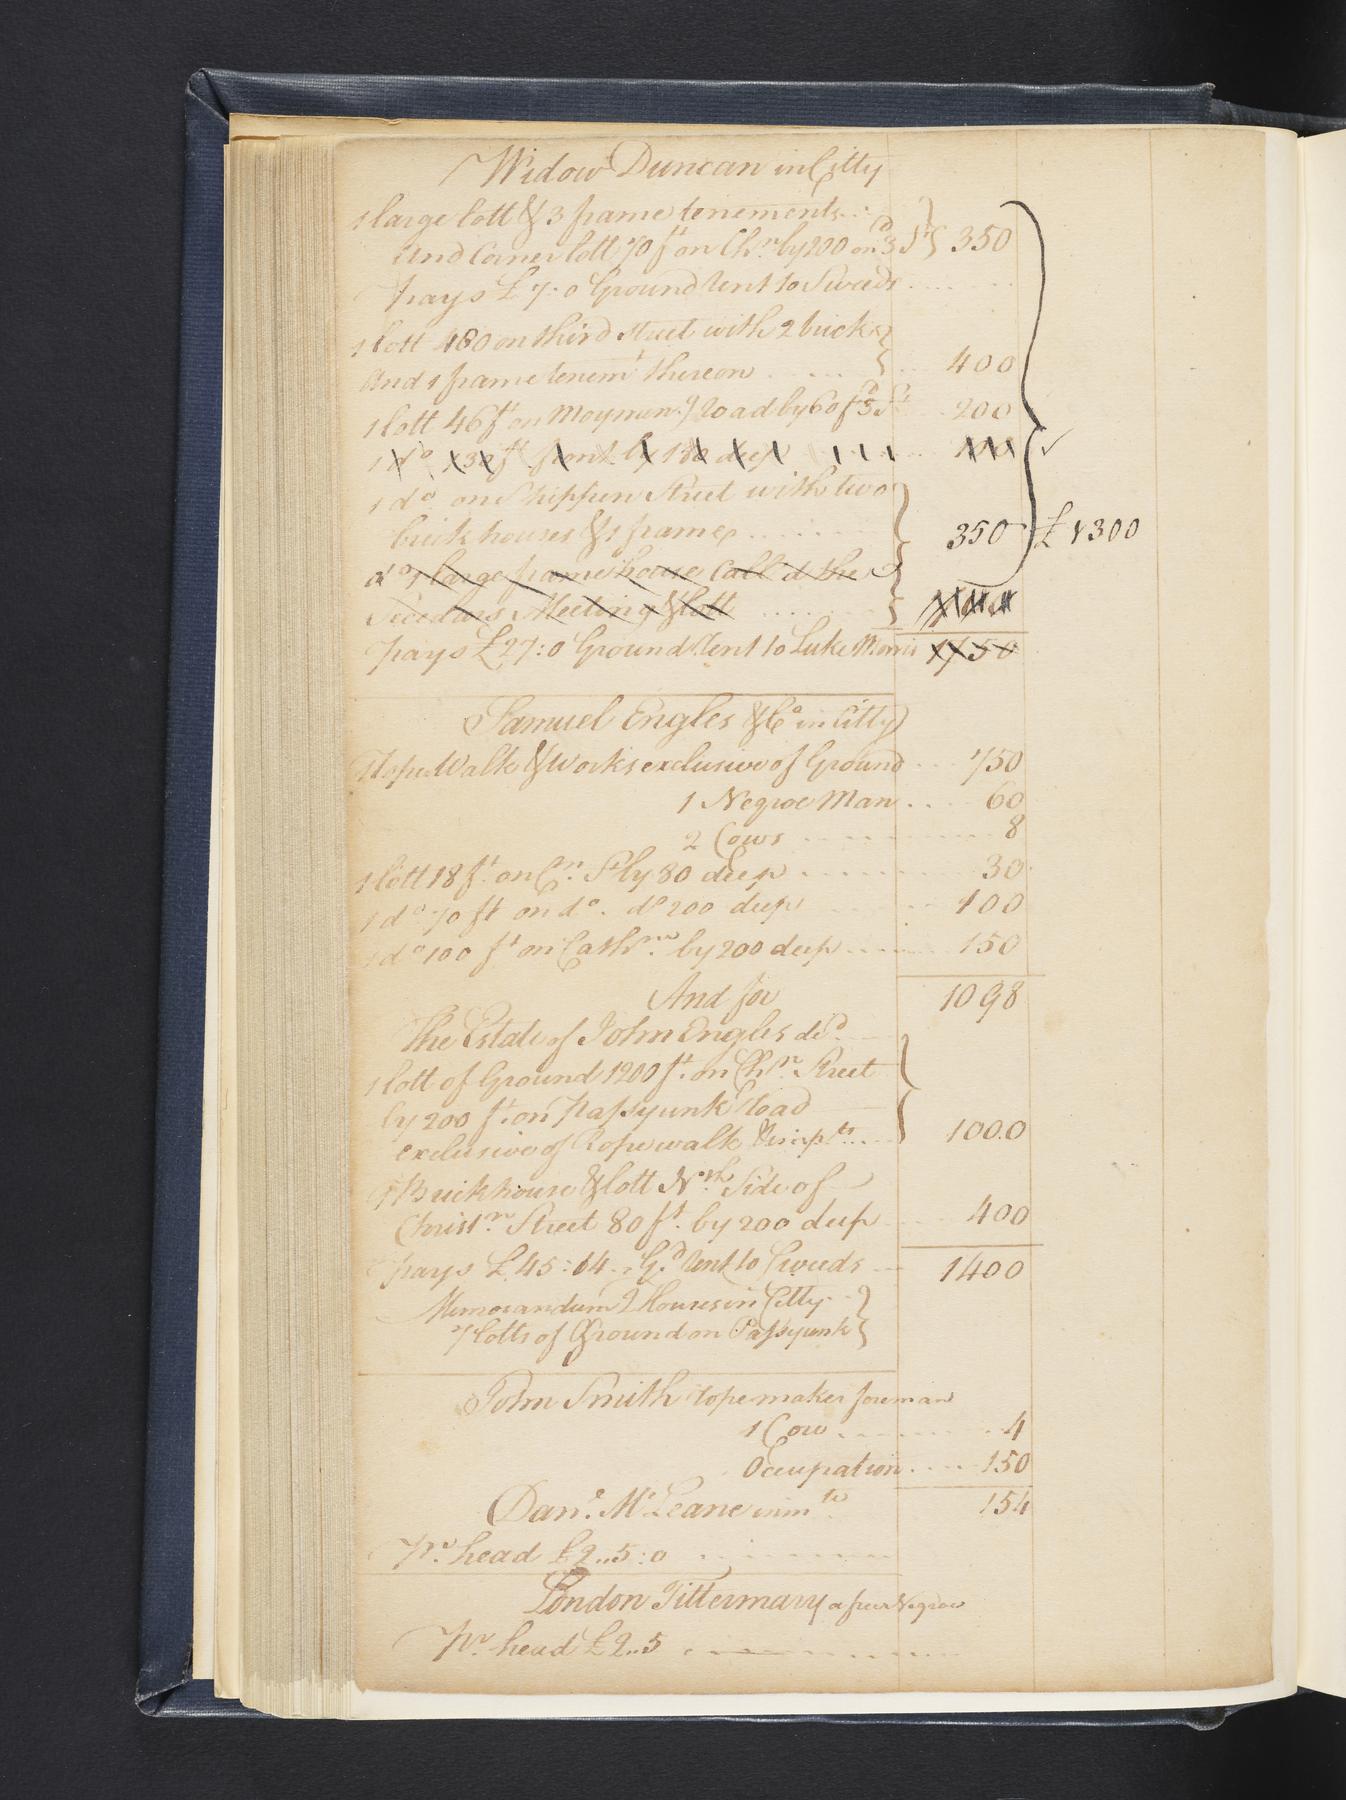 Widow Duncan in Citty
1 large lott & 3 frame tenements..
And Corner lott 70 ft on Chrn by 200 on 3d St 350
Pays £7:0 Ground Rent to Sweeds ....
1 lott 180 on third Street with 2 brick
And 1 frame tenemt thereon ..... 400
1 lott 46 ft on Moymensg Road by 60 ft 3d St 200
1 do 30 ft front by 180 deep
1 do on Shippen Street with two
brick houses & 1 frame ...... 350 £1300
do 1 large frame house Call'd the
Secedars Meeting & lott ......
Pays £27:0 Ground Rent to Luke Morris 1750
Samuel Engles & Co in Citty
Rope Walk & Works exclusive of Ground ... 750
1 Negroe Man .... 60
2 Cows ...... 8
1 lott 18 ft. on Cn. St by 80 deep ...... 30
1 do 70 ft on do. do 200 deep ...... 100
1 do 100 ft on Cathrn. by 200 deep .... 150
And for 1098
The Estate of John Engles decd
1 lott of Ground 1200 ft. on Chrn. Street
by 200 ft. on Passyunk Road
exclusive of Ropewalk .... 1000
1 Brick house & lott Nrth Side of
Christrn. Street 80 ft. by 200 deep ... 400
Pays £45:14 .. Gd Rent to Sweeds 1400
Memorandum 2 Houses in Citty
7 lotts of Ground on Passyunk
John Smith rope maker foreman
1 Cow ...... 4
Occupation .... 150
Danl. McLeane 154
Pr. head £2..5:0 ......
London Tittermary a free Negroe
Pr. head £2..5 ......